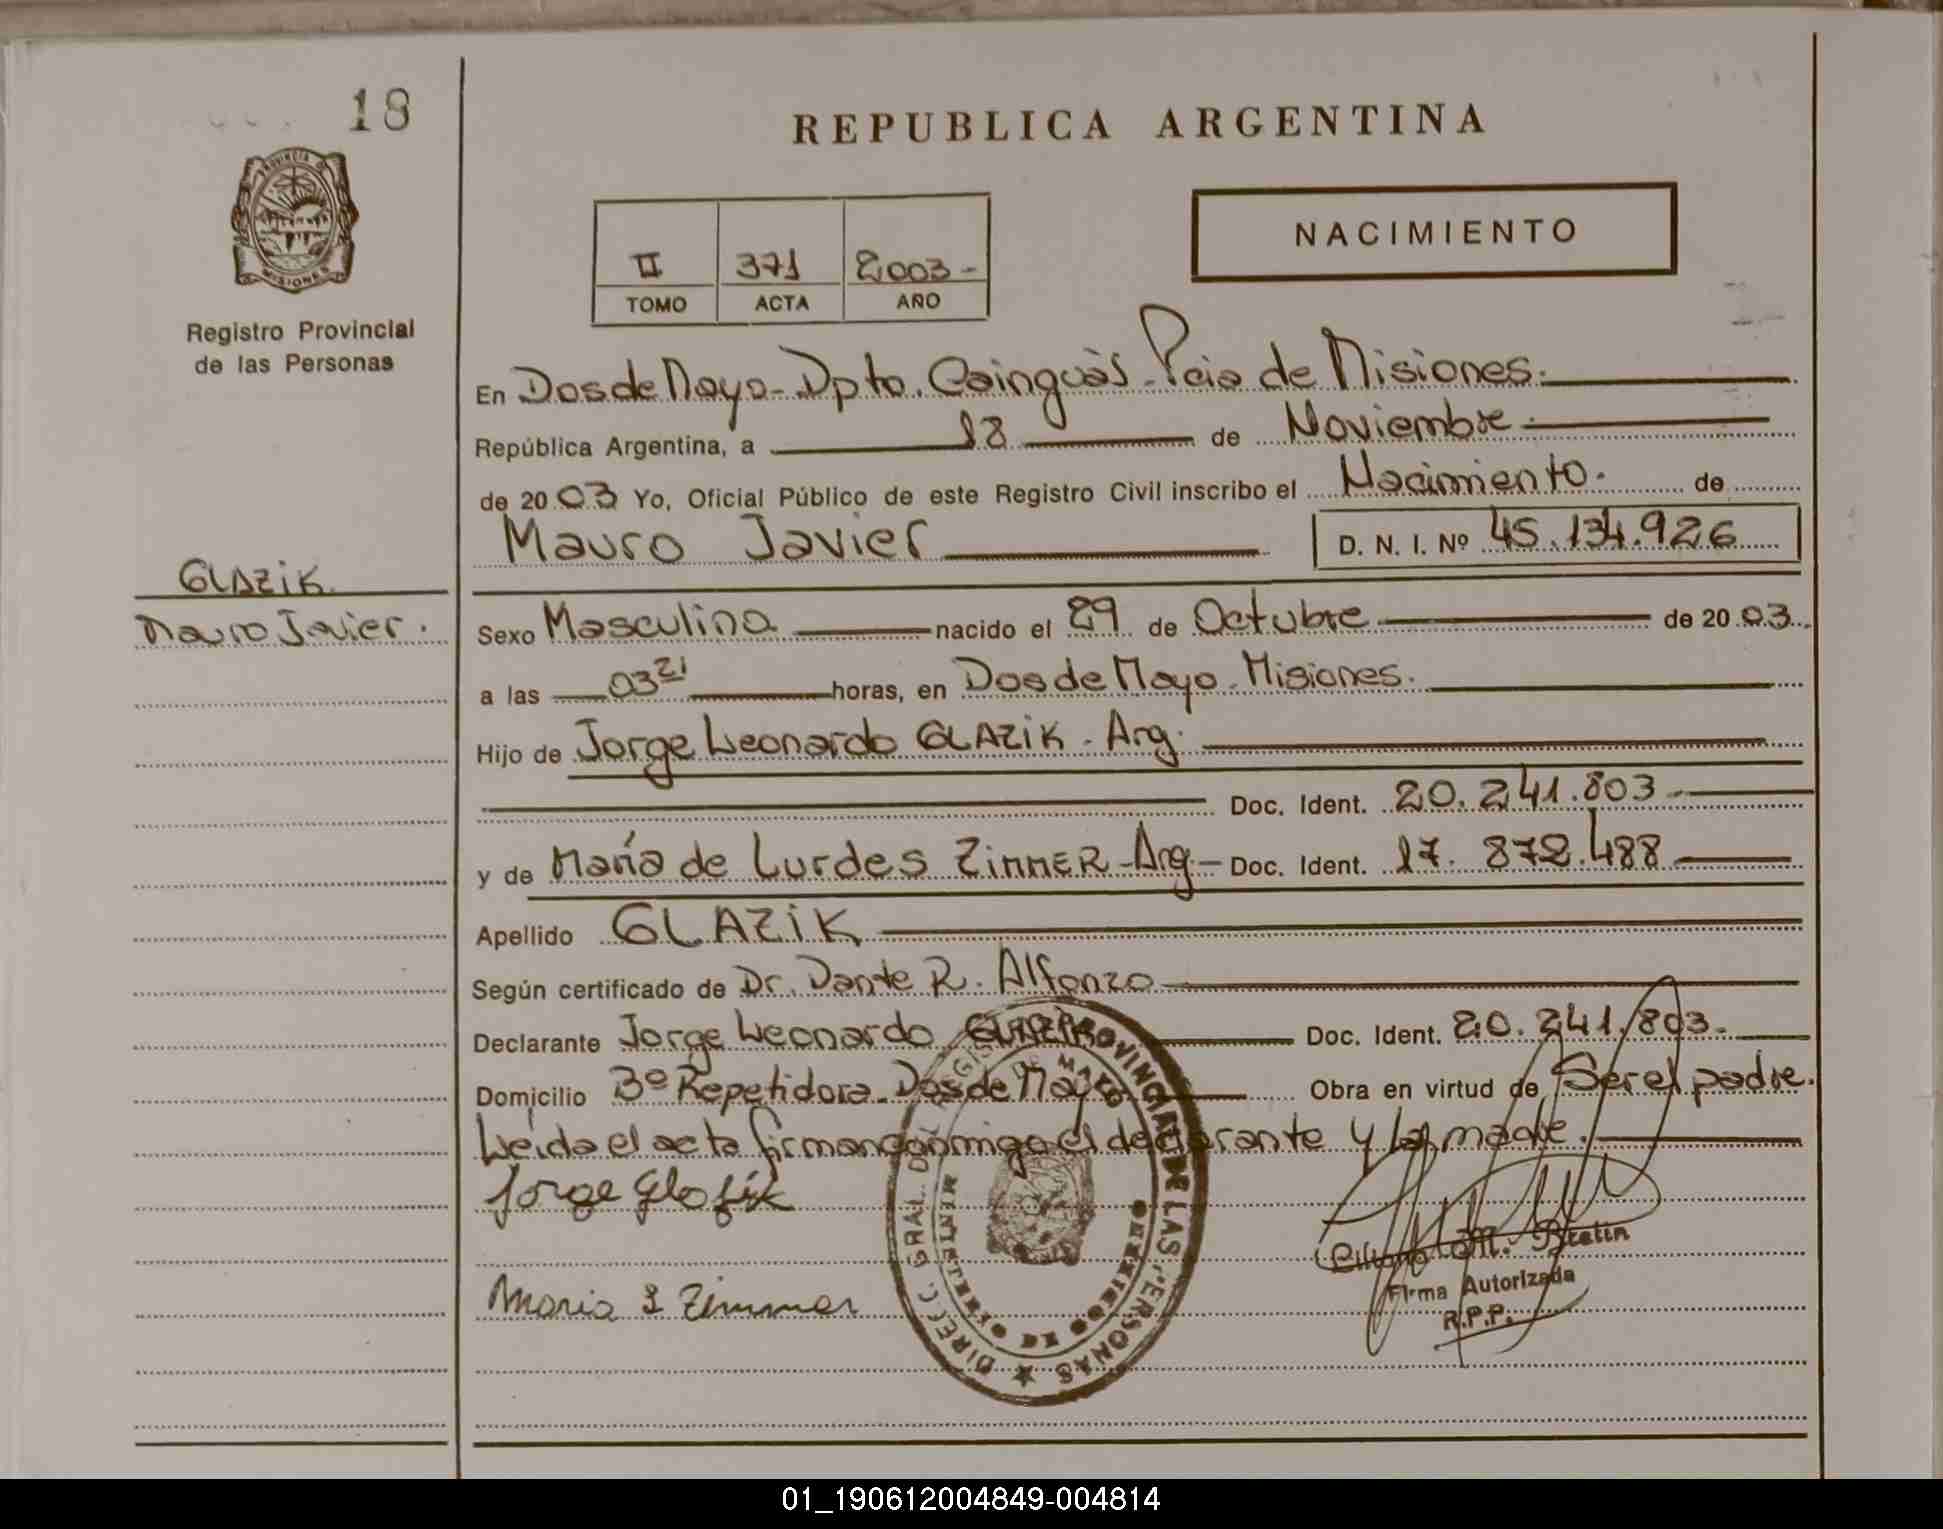 18
REPUBLICA ARGENTINA
PROVINCIA DE MISIONES
Registro Provincial
de las Personas
II 371 2003-
TOMO ACTA AÑO
NACIMIENTO
En Dos de Mayo - Dpto. Cainguás - Pcia de Misiones.
República Argentina, a 18 de Noviembre.
de 2003 Yo, Oficial Público de este Registro Civil inscribo el Nacimiento. de
Mauro Javier D. N. I. Nº 45.134.926
GLAZIK.
Mauro Javier.
Sexo Masculino nacido el 29 de Octubre de 2003.
a las 03 21 horas, en Dos de Mayo - Misiones.
Hijo de Jorge Leonardo GLAZIK - Arg.
Doc. Ident. 20.241.803
y de María de Lurdes ZIMMER - Arg - Doc. Ident. 17.872.488
Apellido GLAZIK
Según certificado de Dr. Dante R. Alfonzo
Declarante Jorge Leonardo GLAZIK Doc. Ident. 20.241.803-
Domicilio Bº Repetidora - Dos de Mayo Obra en virtud de Ser el padre.
Leída el acta firman conmigo el declarante y la madre.
Jorge Glazik
Maria L Zimmer
DIREC. GRAL. DEL REGISTRO PROVINCIAL DE LAS PERSONAS
DOS DE MAYO
M. Bretin
Firma Autorizada
R.P.P.
01_190612004849-004814